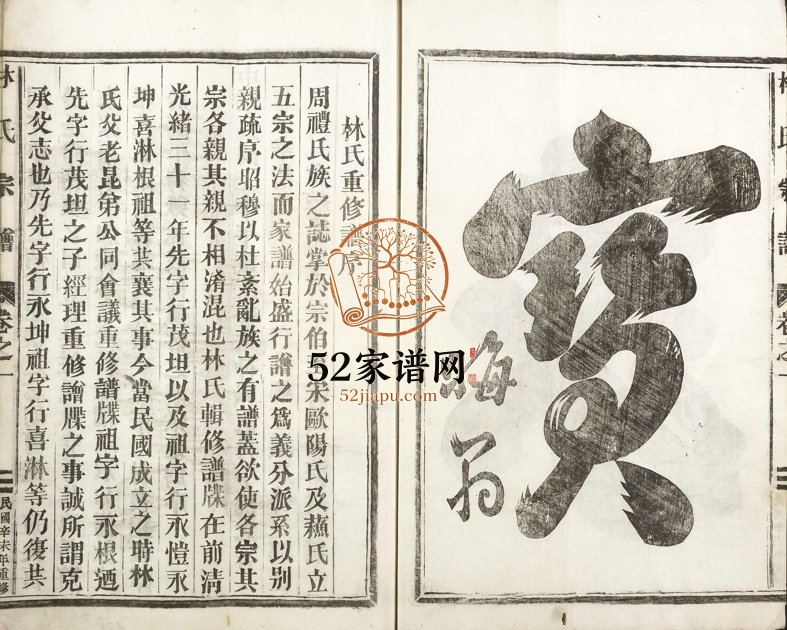 寶
晦翁
林氏重修譜序
周禮氏族之誌掌於宗伯宋歐陽氏及蘓氏立
五宗之法而家譜始盛行譜之爲義分派系以別
親疏序昭穆以杜紊亂族之有譜蓋欲使各宗其
宗各親其親不相淆混也林氏輯修譜牒在前清
光緒三十一年先字行茂坦以及祖字行永愷永
坤喜淋根祖等共襄其事今當民國成立之時林
氏父老昆弟公同會議重修譜牒祖字行永根廼
先字行茂坦之子經理重修譜牒之事誠所謂克
承父志也乃先字行永坤祖字行喜淋等仍復共
林氏宗譜
卷之一
民國辛未年重修
林氏宗譜
卷之一
52家谱网
52jiapu.com